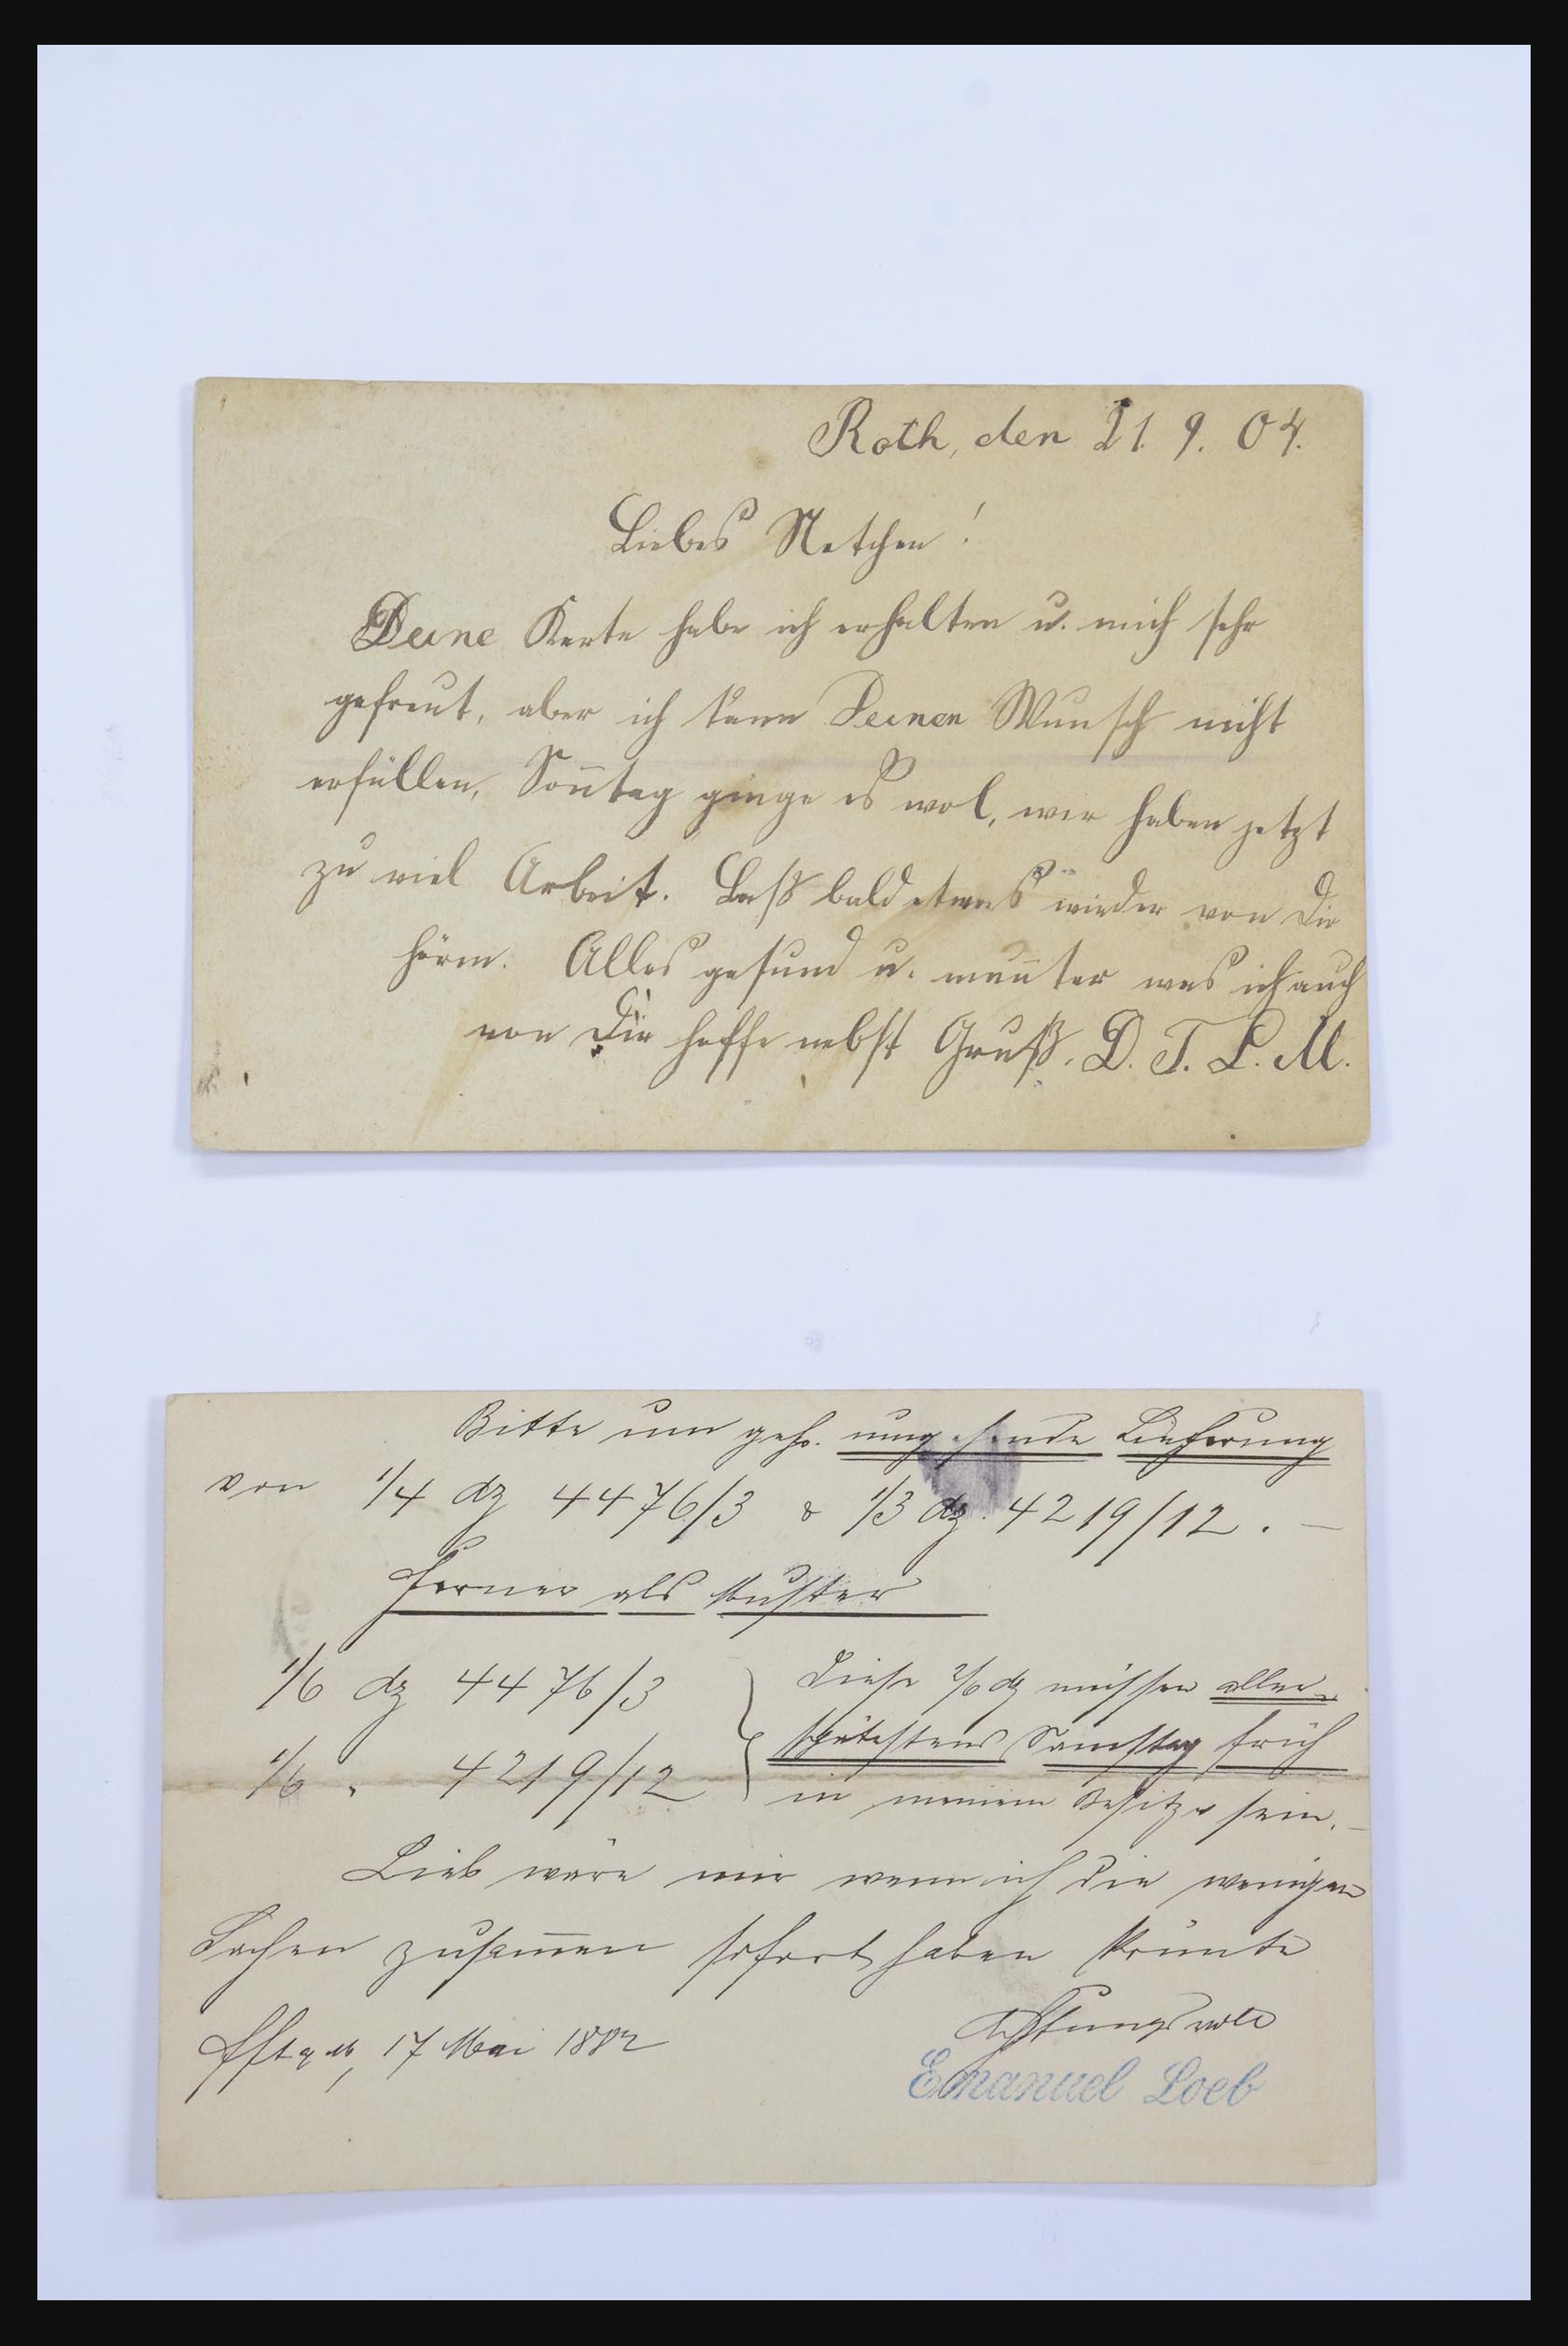 Roth, den 21. 9. 04.
Liebes Netchen!
Deine Karte habe ich erhalten u. mich sehr
gefreut, aber ich kann Deinen Wunsch nicht
erfüllen, Son̄tag ginge es wol, wir haben jetzt
zu viel Arbeit. Laß bald etwas wieder von Dir
hören. Alles gesund u. mun̄ter was ich auch
von Dir hoffe nebst Gruß. D. T. L. M.
Bitte um gefl. umgehende Lieferung
von 1/4 dz 4476/3 & 1/3 dz. 4219/12. —
Ferner als Muster
1/6 dz 4476/3
1/6 " 4219/12
Diese 2/6 dz müssen aller-
spätestens Samstag früh
in meinem Besitze sein. —
Lieb wäre mir wenn ich die wenigen
Sachen zusam̄en sofort haben könnte
17 Mai 1882
Achtungsvoll
Emanuel Loeb